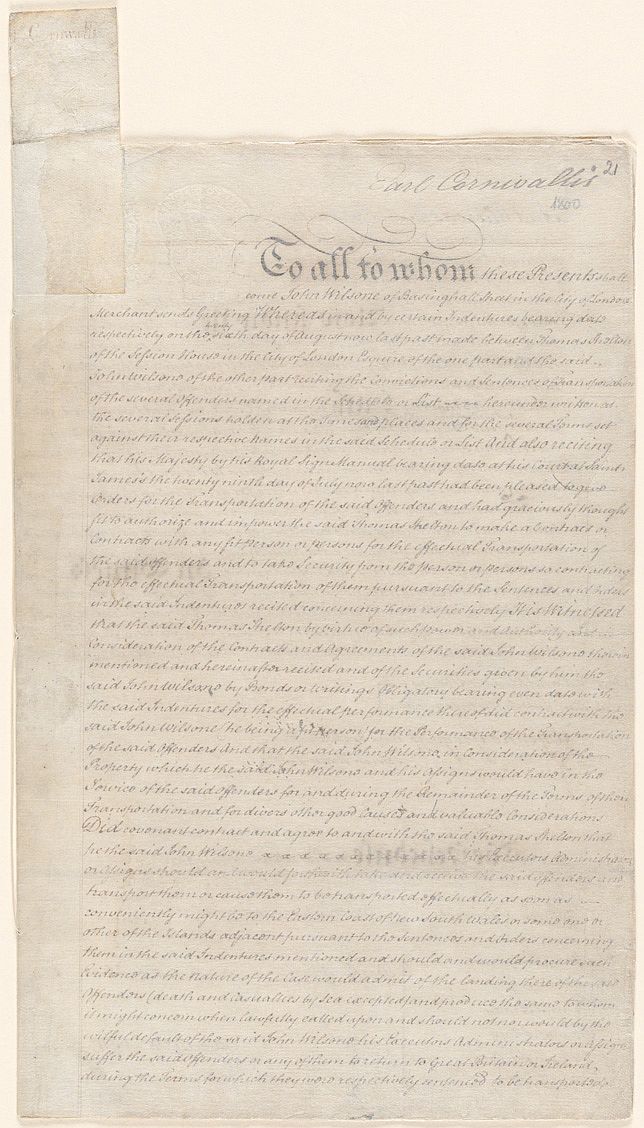 Cornwallis
21
Earl Cornwallis
1800
To all to whom these Presents shall
come John Wilsone of Basinghall Street in the City of London
Merchant sends Greeting Whereas in and by certain Indentures bearing date
respectively on the sixth day of August now last past made between Thomas Shelton
of the Session House in the City of London Esquire of the one part and the said
John Wilsone of the other part reciting the Convictions and Sentences of Transportation
of the several Offenders named in the Schedule or List hereunder written at
the several Sessions holden at the Times and places and for the several Terms set
against their respective Names in the said Schedule or List And also reciting
that his Majesty by his Royal Sign Manual bearing date at his Court at Saint
James's the twenty ninth day of July now last past had been pleased to give
Orders for the Transportation of the said Offenders and had graciously thought
fit to authorize and impower the said Thomas Shelton to make a Contract or
Contracts with any fit person or persons for the effectual Transportation of
the said Offenders and to take Security from the person or persons so contracting
for the effectual Transportation of them pursuant to the Sentences and Orders
in the said Indentures recited concerning them respectively It is Witnessed
that the said Thomas Shelton by virtue of such power and Authority and in
Consideration of the Contracts and Agreements of the said John Wilsone therein
mentioned and hereinafter recited and of the Securities given by him the
said John Wilsone by Bonds or writings Obligatory bearing even date with
the said Indentures for the effectual performance thereof did contract with the
said John Wilsone (he being a fit person) for the Performance of the Transportation
of the said Offenders And that the said John Wilsone in Consideration of the
Property which he the said John Wilsone and his Assigns would have in the
Service of the said Offenders for and during the Remainder of the Terms of their
Transportation and for divers other good Causes and valuable Considerations
Did covenant contract and agree to and with the said Thomas Shelton that
he the said John Wilsone his Executors Administrators
or Assigns should and would forthwith take and receive the said Offenders and
transport them or cause them to be transported effectually as soon as
conveniently might be to the Eastern Coast of New South Wales or some one or
other of the Islands adjacent pursuant to the Sentences and Orders concerning
them in the said Indentures mentioned and should and would procure such
Evidence as the Nature of the Case would admit of the landing there of the said
Offenders (death and Casualties by Sea excepted) and produce the same to whom
it might concern when lawfully called upon and should not nor would by the
wilful default of the said John Wilsone his Executors Administrators or Assigns
suffer the said Offenders or any of them to return to Great Britain or Ireland
during the Terms for which they were respectively sentenced to be transported